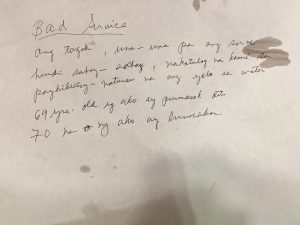 Bad Service
ang tagal, una-una pa ang serve
hindi sabay-sabay, nakatulog na kami sa
paghihintay - natunaw na ang yelo sa water
69 yrs. old ng ako ay pumasok at
70 na ng ako ay lumabas